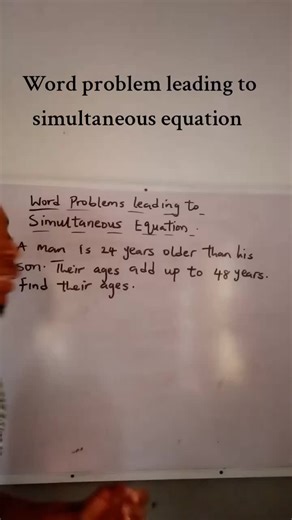 Word problem leading to
simultaneous equation
Word Problems leading to
Simultaneous Equation.
A man is 24 years older than his
son. Their ages add up to 48 years.
find their ages.